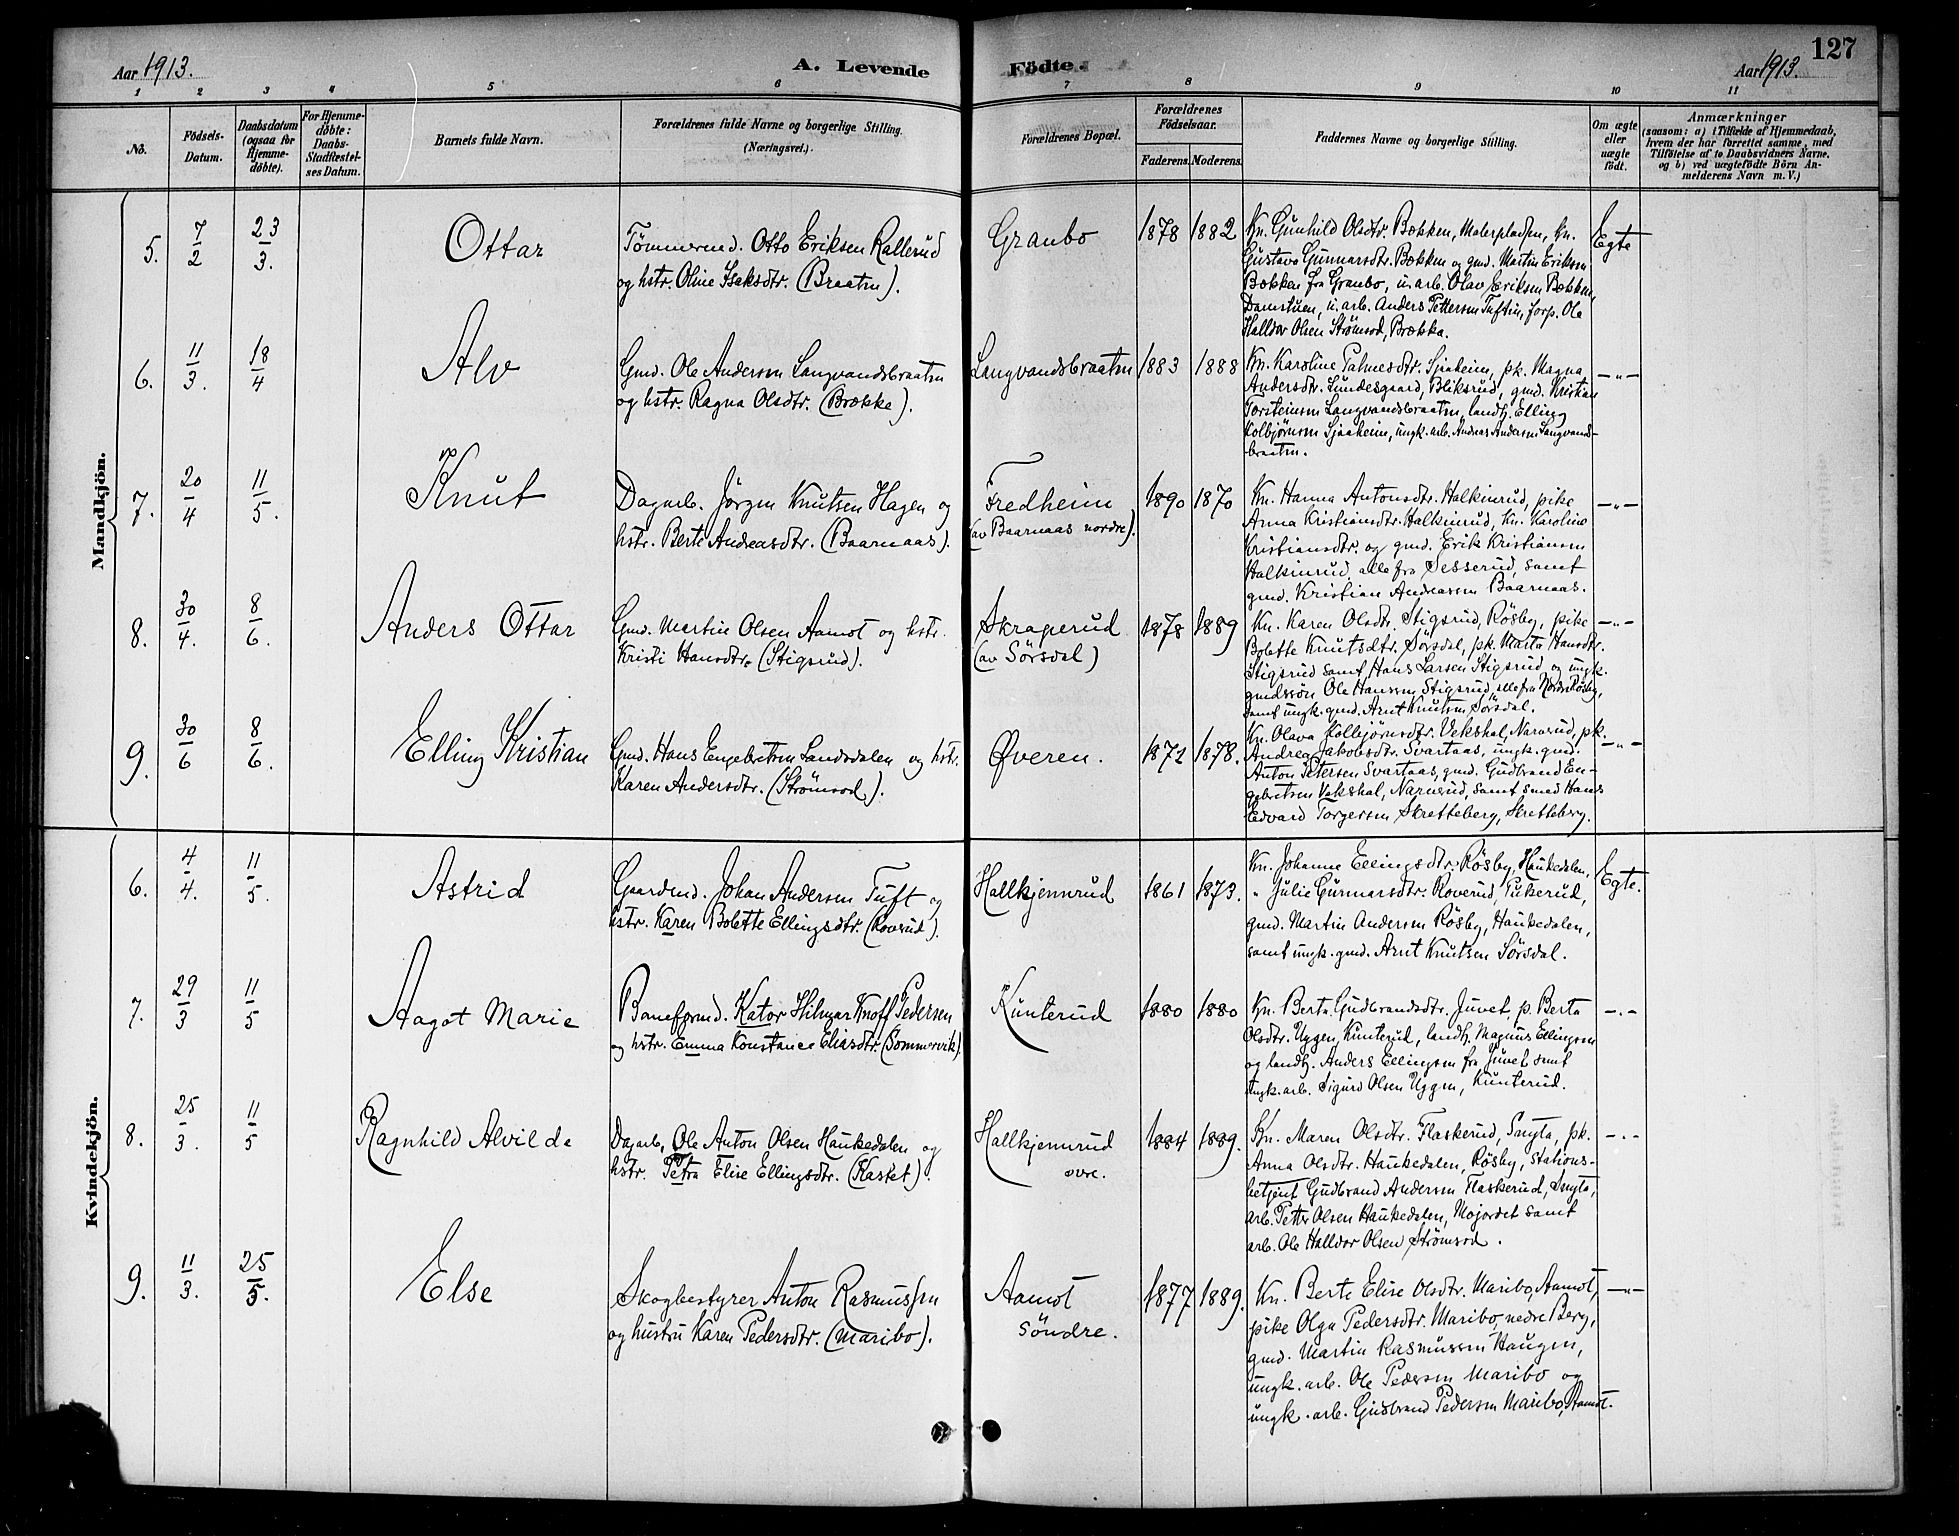 Aar 1913.
A. Levende
Födte.
Aar 1913.
127
1 2 3 4 5 6 7 8 9 10 11
No.
Födsels-
Datum.
Daabsdatum
(ogsaa for
Hjemme-
döbte).
For Hjemme-
döbte:
Daabs-
Stadfæstel-
ses Datum.
Barnets fulde Navn.
Forældrenes fulde Navne og borgerlige Stilling.
(Næringsvei.)
Forældrenes Bopæl.
Forældrenes
Födselsaar.
Faderens. Moderens.
Faddernes Navne og borgerlige Stilling.
Om ægte
eller
uægte
födt.
Anmærkninger
(saasom: a) i Tilfælde af Hjemmedaab,
hvem der har forrettet samme, med
Tilföielse af to Daabsvidners Navne,
og b) ved uægtefödte Börn An-
melderens Navn m. V.)
Mandkjön.
5. 7/2 23/3. Ottar
Tömmermd. Otto Eriksen Rallerud
og hstr. Oline Isaksdtr. (Braatin).
Granbo 1878 1882
Kn. Gunhild Olsdtr. Bækken, Malerpladsen, kn.
Gustava Gunnarsdtr. Bækken og gmd. Martin Eriksen
Bækken fra Granbo, u. arb. Olav Eriksen Bækken,
Damstuen, u. arb. Anders Pettersen Tuftin, forp. Ole
Halldor Olsen Strömsod, Brække.
Egte
6. 11/3. 18/4 Alv
Gmd. Ole Andersen Langvandsbraaten
og hstr. Ragna Olsdtr. (Brække).
Langvandsbraaten 1883 1888
Kn. Karoline Palmesdtr. Sjaaheim, pk. Magna
Andersdtr. Lundesgaard, Bliksrud, gmd. Kristian
Torsteinsen Langvandsbraaten, landh. Elling
Kolbjörnsen Sjaaheim, ungk. arb. Andreas Andersen Langvands-
braaten.
—"—
7. 20/4 11/5. Knut
Dagarb. Jörgen Knutsen Hagen og
hstr. Berte Andreasdtr. (Baarnaas).
Fredheim
(av Baarnaas nordre).
1890 1870
Kn. Hanna Antonsdtr. Halkinrud, pike
Anna Kristiansdtr. Halkinrud, kn. Karoline
Kristiansdtr. og gmd. Erik Kristiansen
Halkinrud, alle fra Sesserud, samt
gmd. Kristian Andreassen Baarnaas.
—"—
8. 30/4. 8/6. Anders Ottar
Gmd. Martin Olsen Aamot og hstr.
Kristi Hansdtr. (Stigsrud).
Skraperud
(av Sörsdal)
1878 1889
Kn. Karen Olsdtr. Stigsrud, Rösby, pike
Bolette Knutsdtr. Sörsdal, pk. Marta Hansdtr.
Stigsrud samt Hans Larsen Stigsrud og ungk.
gmdssön Ole Hansen Stigsrud, alle fra Nordre Rösby,
samt ungk. gmd. Arnt Knutsen Sörsdal.
—"—
9. 30/6 8/6. Elling Kristian
Gmd. Hans Engebretsen Landsdalen og hstr.
Karen Andersdtr. (Strömsod).
Øveren. 1872 1878.
Kn. Olava Kolbjörnsdtr. Vekshal, Narverud, pk.
Andrea Jakobsdtr. Svartaas, ungk. gmd.
Anton Petersen Svartaas, gmd. Gudbrand En-
gebretsen Vekshal, Narverud, samt smed Hans
Edvard Torgersen Skretteberg, Skretteberg.
—"—
Kvindekjön.
6. 4/4. 11/5. Astrid
Gaardmd. Johan Andersen Tuft og
hstr. Karen Bolette Ellingsdtr. (Roverud).
Hallkjennrud 1861 1873.
Kn. Johanne Ellingsdtr. Rösby, Haukedalen,
" Julie Gunnarsdtr. Roverud, Pukerud,
gmd. Martin Andersen Rösby, Haukedalen,
samt ungk. gmd. Arnt Knutsen Sörsdal.
Egte.
7. 29/3 11/5 Aagot Marie
Baneformd. Kator Hilmar Knoff Pedersen
og hstr. Emma Konstance Eliasdtr. (Sommervik).
Kunterud 1880 1880
Kn. Berta Gudbrandsdtr. Juvet, p. Berta
Olsdtr. Uggen, Kunterud, landh. Magnus Ellingsen
og landh. Anders Ellingsen fra Juvet samt
ungk. arb. Sigurd Olsen Uggen, Kunterud.
—"—
8. 25/3. 11/5 Ragnhild Alvilde
Dagarb. Ole Anton Olsen Haukedalen og
hstr. Petra Elise Ellingsdtr. (Kastet).
Hallkjennrud
övre.
1884 1889.
Kn. Maren Olsdtr. Flaskerud, Smyta, pk.
Anna Olsdtr. Haukedalen, Rösby, stations-
betjent Gudbrand Andersen Flaskerud, Smyta,
arb. Petter Olsen Haukedalen, Mojordet samt
arb. Ole Halldor Olsen Strömsod.
—"—
9. 11/3. 25/5. Else
Skogbestyrer Anton Rasmussen
og hustru Karen Pedersdtr. (Maribo).
Aamot
söndre.
1877 1889.
Kn. Berte Elise Olsdtr. Maribo, Aamot,
pike Olga Pedersdtr. Maribo, nedre Berg,
gmd. Martin Rasmussen Haugen,
ungk. arb. Ole Pedersen Maribo og
ungk. arb. Gudbrand Pedersen Maribo, Aamot.
—"—